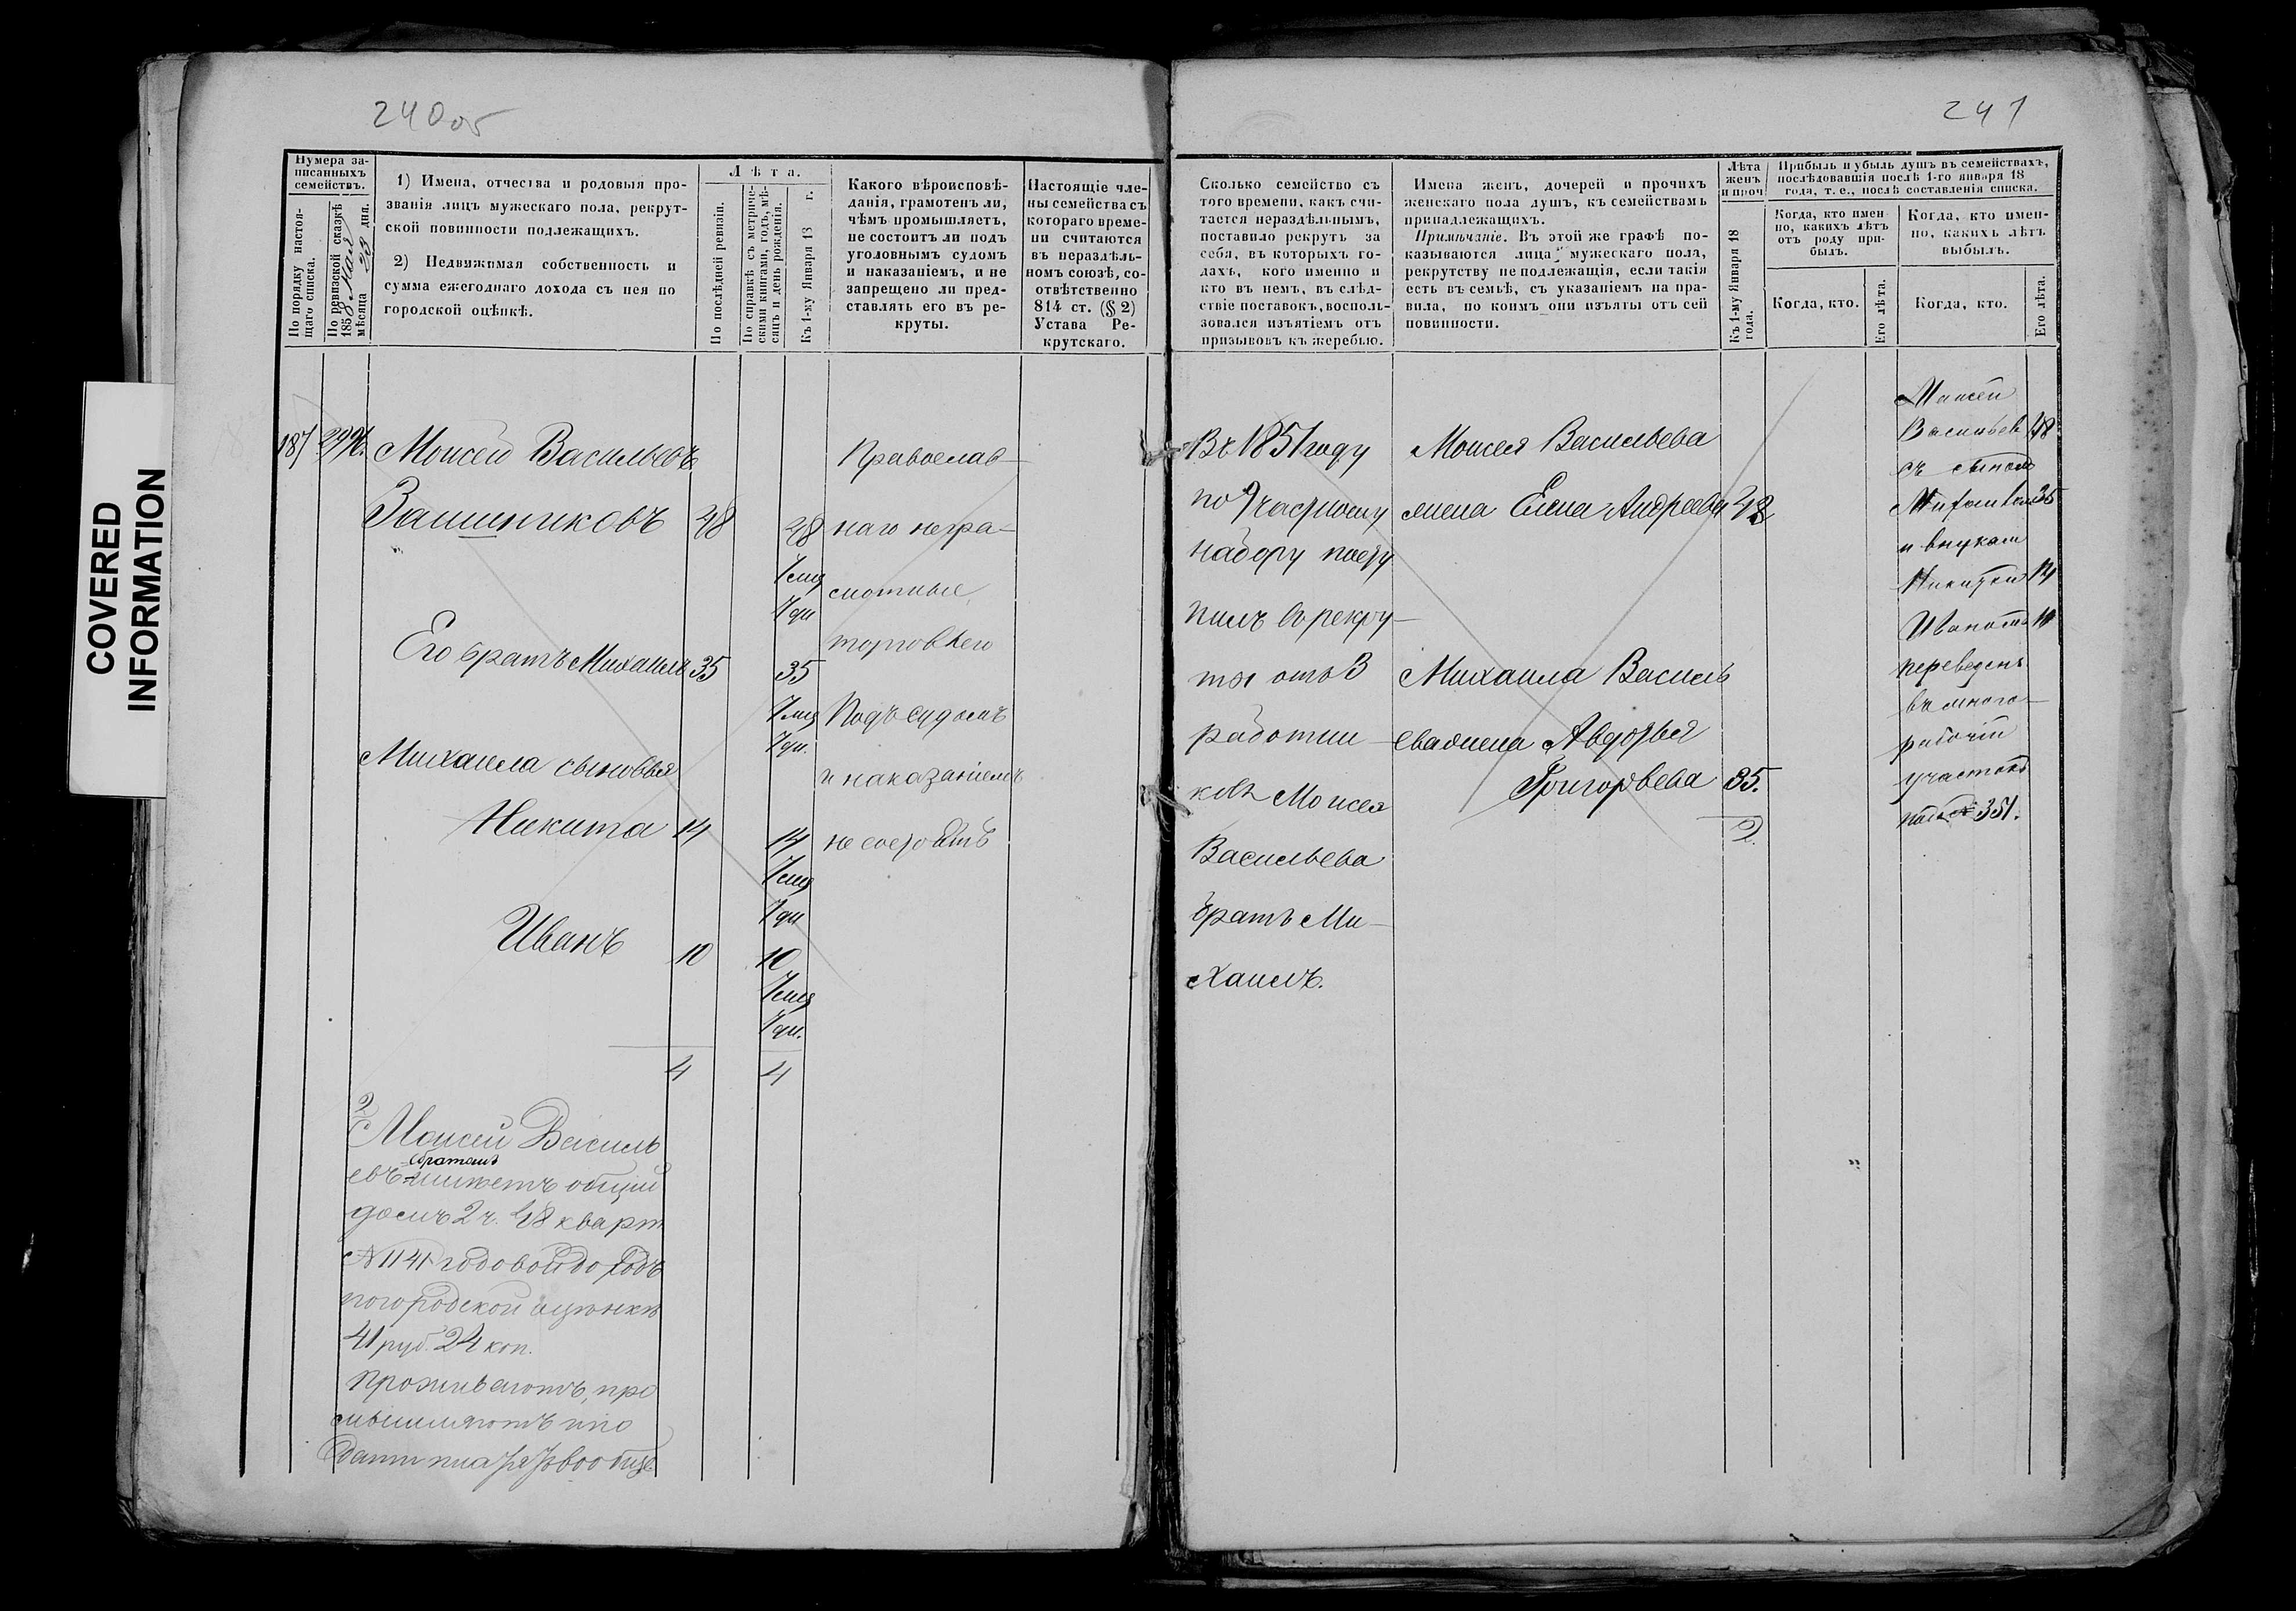 240об
241
COVERED
INFORMATION
Нумера за-
писанныхъ
семействъ.
По порядку настоя-
щаго списка.
По ревизской сказкѣ
1858 Мая
мѣсяца 23 дня.
1) Имена, отчества и родовыя про-
званія лицъ мужескаго пола, рекрут-
ской повинности подлежащихъ.
2) Недвижимая собственность и
сумма ежегоднаго дохода съ нея по
городской оцѣнкѣ.
Лѣта.
По послѣдней ревизіи.
По справкѣ съ метриче-
скими книгами, годъ, мѣ-
сяцъ и день рожденія.
Къ 1-му Января 18 г.
Какого вѣроисповѣ-
данія, грамотенъ ли,
чѣмъ промышляетъ,
не состоитъ ли подъ
уголовнымъ судомъ
и наказаніемъ, и не
запрещено ли пред-
ставлять его въ ре-
круты.
Настоящіе чле-
ны семейства съ
котораго време-
ни считаются
въ нераздѣль-
номъ союзѣ, со-
отвѣтственно
814 ст. (§ 2)
Устава Ре-
крутскаго.
187
Моисей Васильевъ
Заишниковъ 48 48
7 мц
7 дн
Его братъ Михаилъ 35 35
7 мц
7 дн.
Михаила сыновья
Никита 14 14
7 мц
7 дн
Иванъ 10 10
7 мц
7 дн.
4 4
Православ-
наго негра-
мотные
торговлею
Подъ судомъ
и наказаніемъ
не состоятъ
Моисей Василь
евъ съ братомъ имѣетъ общій
домъ 2 ч. 48 кварт
№ 1141 годовой доходъ
по городской оцѣнкѣ
41 руб. 24 коп.
Проживаютъ, про
мышляютъ и по
дати платятъ вообще
Сколько семейство съ
того времени, какъ счи-
тается нераздѣльнымъ,
поставило рекрутъ за
себя, въ которыхъ го-
дахъ, кого именно и
кто въ немъ, въ слѣд-
ствіе поставокъ, восполь-
зовался изъятіемъ отъ
призывовъ къ жеребью.
Имена женъ, дочерей и прочихъ
женскаго пола душъ, къ семействамъ
принадлежащихъ.
Примѣчаніе. Въ этой же графѣ по-
казываются лица мужескаго пола,
рекрутству не подлежащія, если такія
есть въ семьѣ, съ указаніемъ на пра-
вила, по коимъ они изъяты отъ сей
повинности.
Лѣта
женъ
и проч
Къ 1-му Января 18
года.
Прибыль и убыль душъ въ семействахъ,
послѣдовавшія послѣ 1-го января 18
года, т. е., послѣ составленія списка.
Когда, кто имен-
но, какихъ лѣтъ
отъ роду при-
былъ.
Когда, кто имен-
но, какихъ лѣтъ
выбылъ.
Когда, кто.
Его лѣта.
Когда, кто.
Его лѣта.
Въ 1851 году
по 9 частному
набору посту
пилъ въ рекру-
ты отъ 3
работни
ковъ Моисея
Васильева
братъ Ми-
хаилъ.
Моисея Васильева
жена Елена Андреева 42
Михаила Василь
ева жена Авдотья
Григорьева 35.
2
Моисей
Васильев 48
съ
35
и внукам
Никитой 14
Иваномъ 10
переведенъ
въ много-
рабочій
участокъ
подъ № 351.